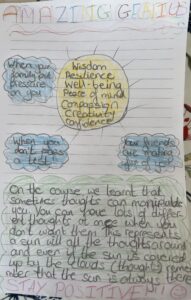 AMAZING GENIUS
When your
family put
pressure
on you
Wisdom
Resilience
Well-being
Peace of mind
Compassion
Creativity
Confidence
When you
test
Your friends
are making
On the course we learnt that
sometimes thoughts can manipulate
you. You can have lots of differ
ent thoughts at once when you
don't want them. This represents
a sun will all the thoughts around
and even if the sun is covered
up by the clouds (thoughts) reme
mber that the sun is always
STAY POSITIVE!